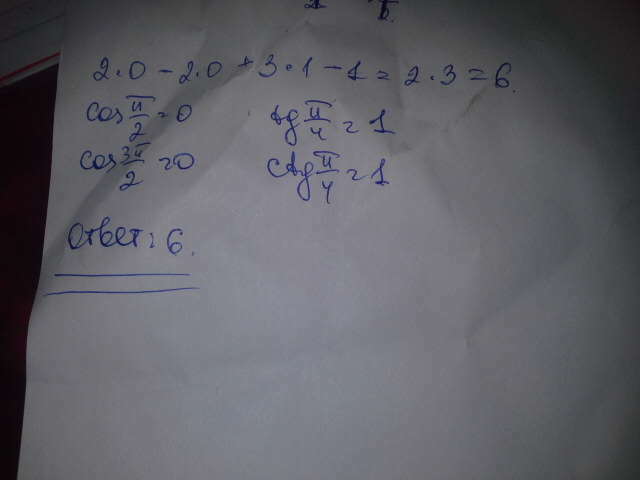 2·0 - 2·0 + 3·1 - 1 = 2·3 = 6.
cos π/2 = 0 tg π/4 = 1
cos 3π/2 = 0 ctg π/4 = 1
Ответ: 6.